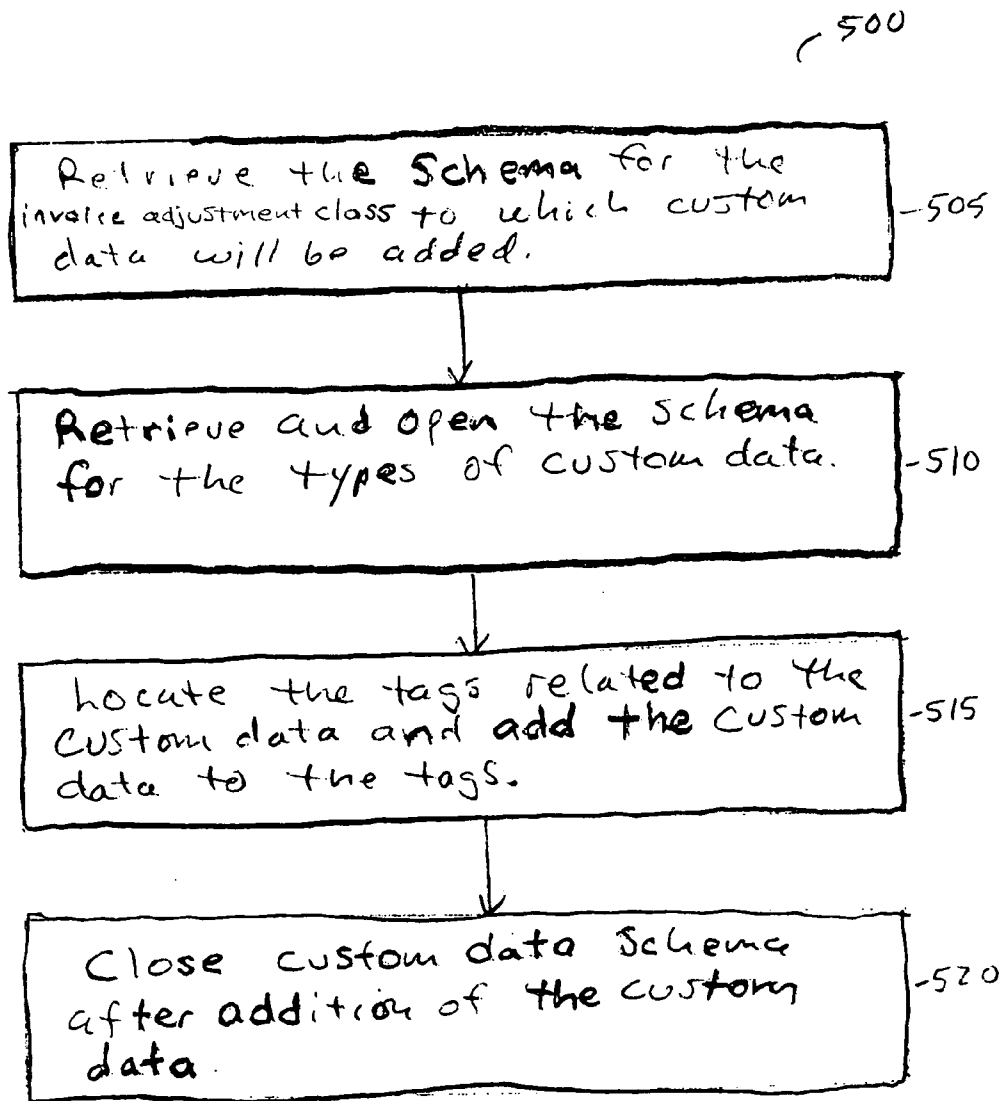 500
Retrieve the Schema for the
invoice adjustment class to which custom
data will be added.
-505
Retrieve and open the schema
for the types of custom data.
-510
Locate the tags related to the
custom data and add the custom
data to the tags.
-515
Close custom data Schema
after addition of the custom
data.
-520